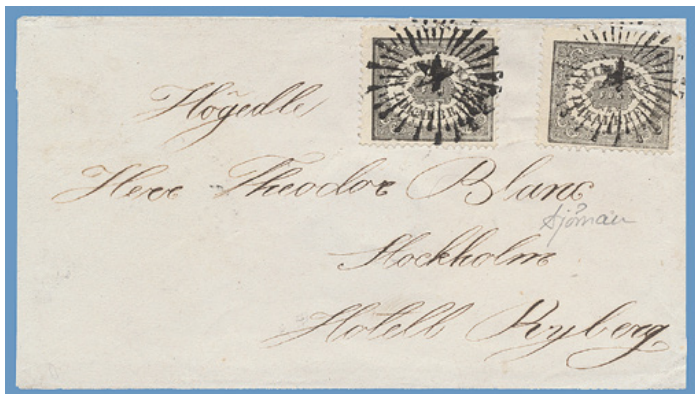 Högedle
Herr Theodor Blanc
Sjöman
Stockholm
Hotell Rydberg